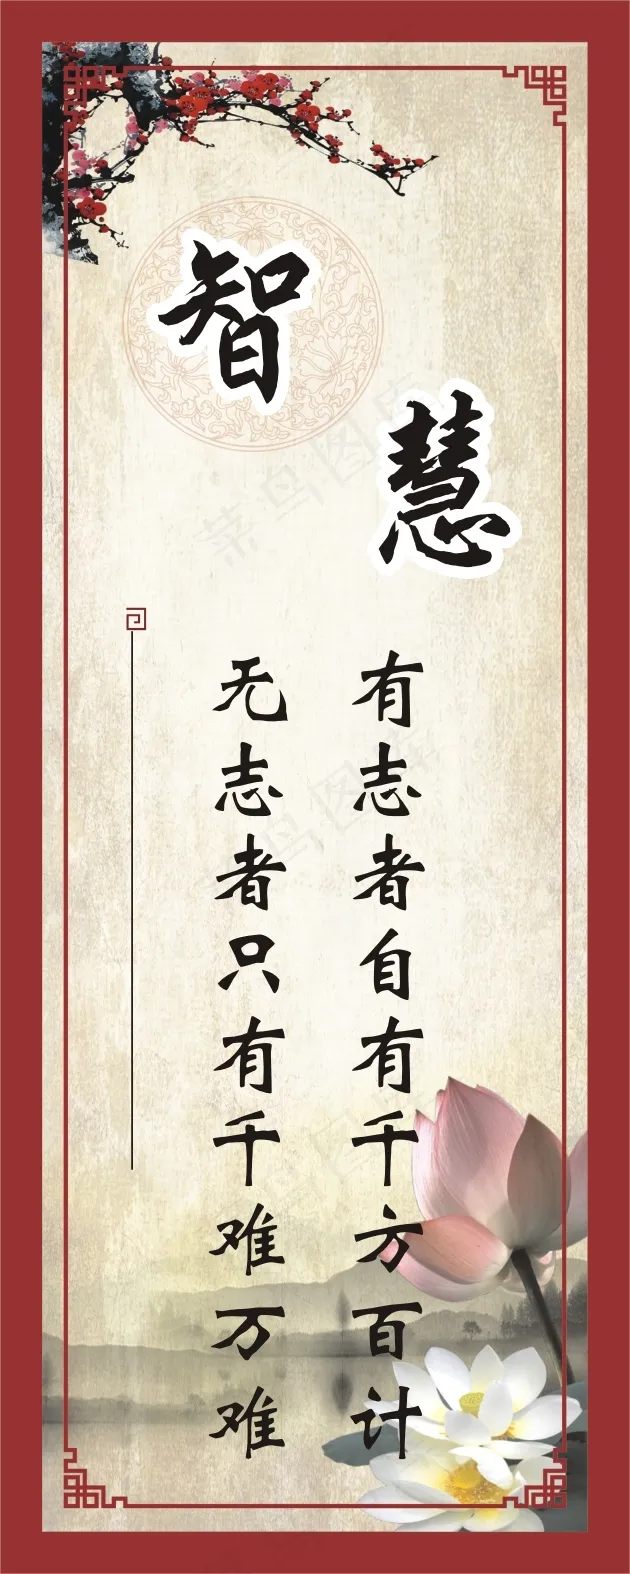 智慧
有志者自有千方百计
无志者只有千难万难
菜鸟图库